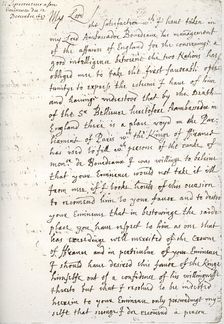 To Eminence afore
Eminence du 12
December 1657
My Lord
The satisfaction wch I have taken in
my Lord Ambassador Bordeaux his management
of the affaires of England for the conserving a
good intelligence between the two Nations has
obliged mee to take the first favourable oppor
tunity to express the esteem I have of him,
and having understood that by the Death
of the Sr Bellievre heretofore Ambassador in
England there is a place voyd in the Par
liament of Paris wch the Kings of France
has used to fill wth persons of the ranke of
monsr de Bordeaux I was willing to believe
that your Eminence would not take it ill
from mee, if I tooke hould of this occasion
to recommend him to your favour and to desire
your Eminence that in bestowinge the saide
place, you have respect to him as one that
has exceedingly well merited of the Crowne
of France and in particular of your Eminence
I should have desired this favour of the Kinge
himselfe out of a confidence of his willingness
thereto but that I resolved to be indebted
herein to your Eminence only perswading my
selfe that having recommended a person